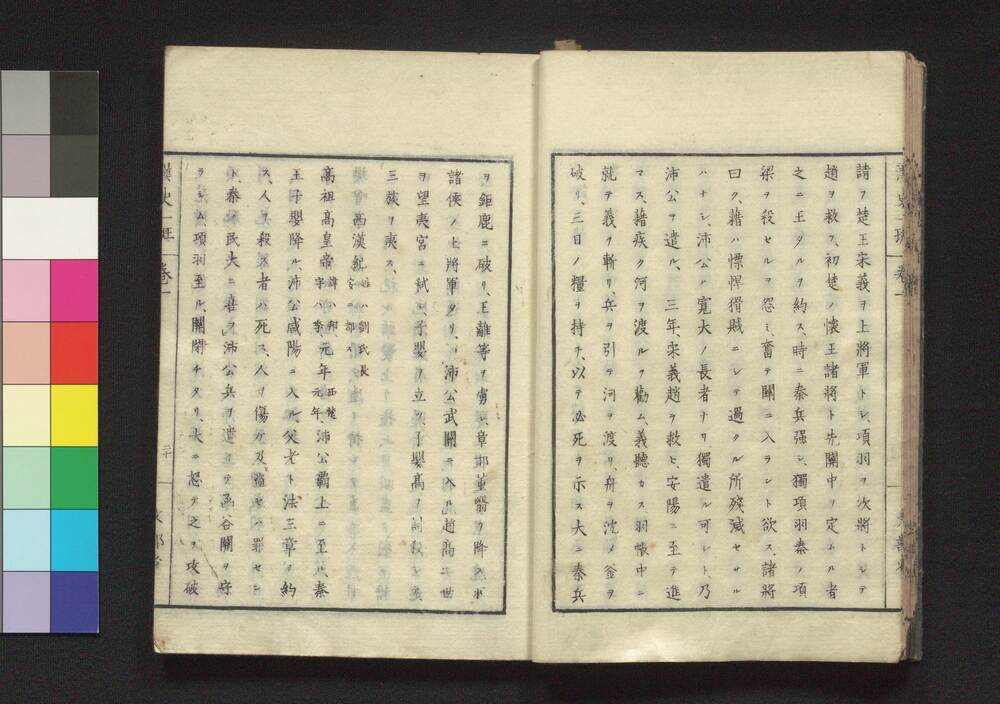 請フ楚王宋義ヲ上將軍トシ項羽ヲ次將トシテ
趙ヲ救フ、初楚ノ懷王諸將ト先關中ヲ定ムル者
之ニ王タルヲ約ス、時ニ秦兵强シ、獨項羽秦ノ項
梁ヲ殺セルヲ怨ミ、奮テ關ニ入ラント欲ス、諸將
曰ク、籍ハ慓悍猾賊ニシテ過クル所殘滅セサル
ハナシ、沛公ハ寬大ノ長者ナリ獨遣ル可シト、乃
沛公ヲ遣ル、三年宋義趙ヲ救ヒ、安陽ニ至テ進
マス、籍疾ク河ヲ渡ルヲ勸ム、義聽カス、羽帳中ニ
就テ義ヲ斬リ、兵ヲ引テ河ヲ渡リ、舟ヲ沈メ釜ヲ
破リ、三日ノ糧ヲ持チ、以テ必死ヲ示ス大ニ秦兵
ヲ鉅鹿ニ破リ、王離等ヲ虜シ、章邯董翳ヲ降ス、
諸侯ノ上將軍タリ、沛公武關ニ入ル、趙高二世
ヲ望夷宮ニ弑シ、子嬰ヲ立ツ、子嬰高ヲ討殺シ
三族ヲ夷ス、
西漢 姓ハ劉氏長
高祖高皇帝 諱ハ邦、字ハ季、元年 西楚元年、沛公霸上ニ至ル、秦
王子嬰降ル、沛公咸陽ニ入ル、父老ト法三章ヲ約
ス、人ヲ殺ス者ハ死ス、人ヲ傷ケ及盜セハ罪セン
ト、秦ノ民大ニ喜フ、沛公兵ヲ遣シテ函谷關ヲ守
ラシム、項羽至ル、關閉チタリ、大ニ怒テ之ヲ攻破
漢史一班 卷一